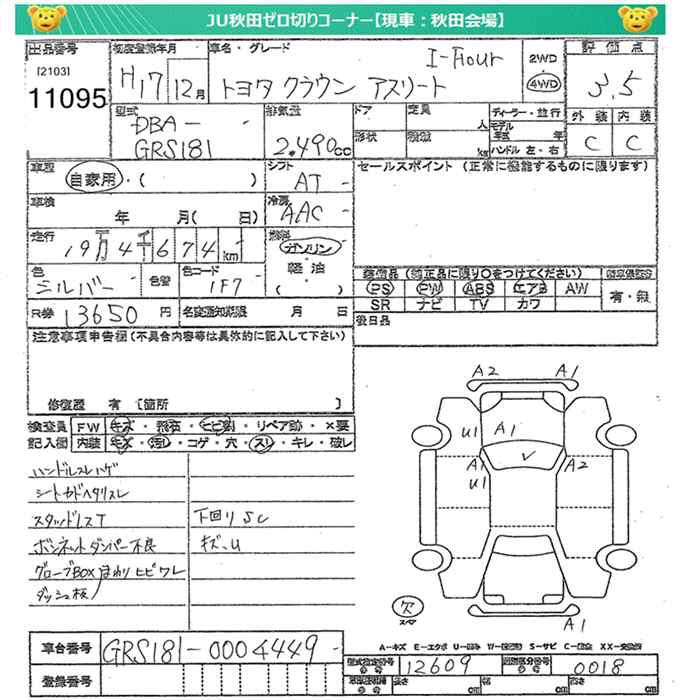 JU秋田ゼロ切りコーナー【現車：秋田会場】
出品番号
[2103]
11095
初度登録年月
H17 12月
車名・グレード
I-Four
トヨタ クラウン アスリート
2WD
4WD
評価点
3.5
外装 内装
C C
型式
DBA-
GRS181
排気量
2.490cc
ドア 定員
人
形状 積載
kg
ディーラー・並行
モデル年式 年
ハンドル 左・右
車歴
自家用・( )
シフト
AT
セールスポイント (正常に機能するものに限ります)
車検
年 月( 日)
冷房
AAC
走行
19万4千674km
燃料
ガソリン
軽油
( )
色
シルバー
色替
色コード
1F7
装備品(純正品に限り○をつけてください)
PS PW ABS エアB AW
SR ナビ TV カワ
有・無
R券 13650 円
名変通知期限 月 日
後日品
注意事項申告欄(不具合内容等は具体的に記入して下さい)
修復歴 有 [箇所 ]
検査員記入欄
FW キズ・飛石・ヒビ割・リペア跡・×要
内装 キズ・汚レ・コゲ・穴・スレ・キレ・破レ
ハンドルスレハゲ
シートカドヘタリスレ
スタッドレスT
ボンネットダンパー不良
グローブBOXまわりヒビワレ
ダッシュ板ノ
下回りSC
キズ、U
A2 A1
U1 A1
A1 U1
A2
A1
欠
スペア
A-キズ E-エクボ U-凹み W-(波凹み) S-サビ C-腐蝕 XX-交換済
車台番号 GRS181-0004449
登録番号
型式指定番号 12609
類別区分番号 0018
cm cm cm